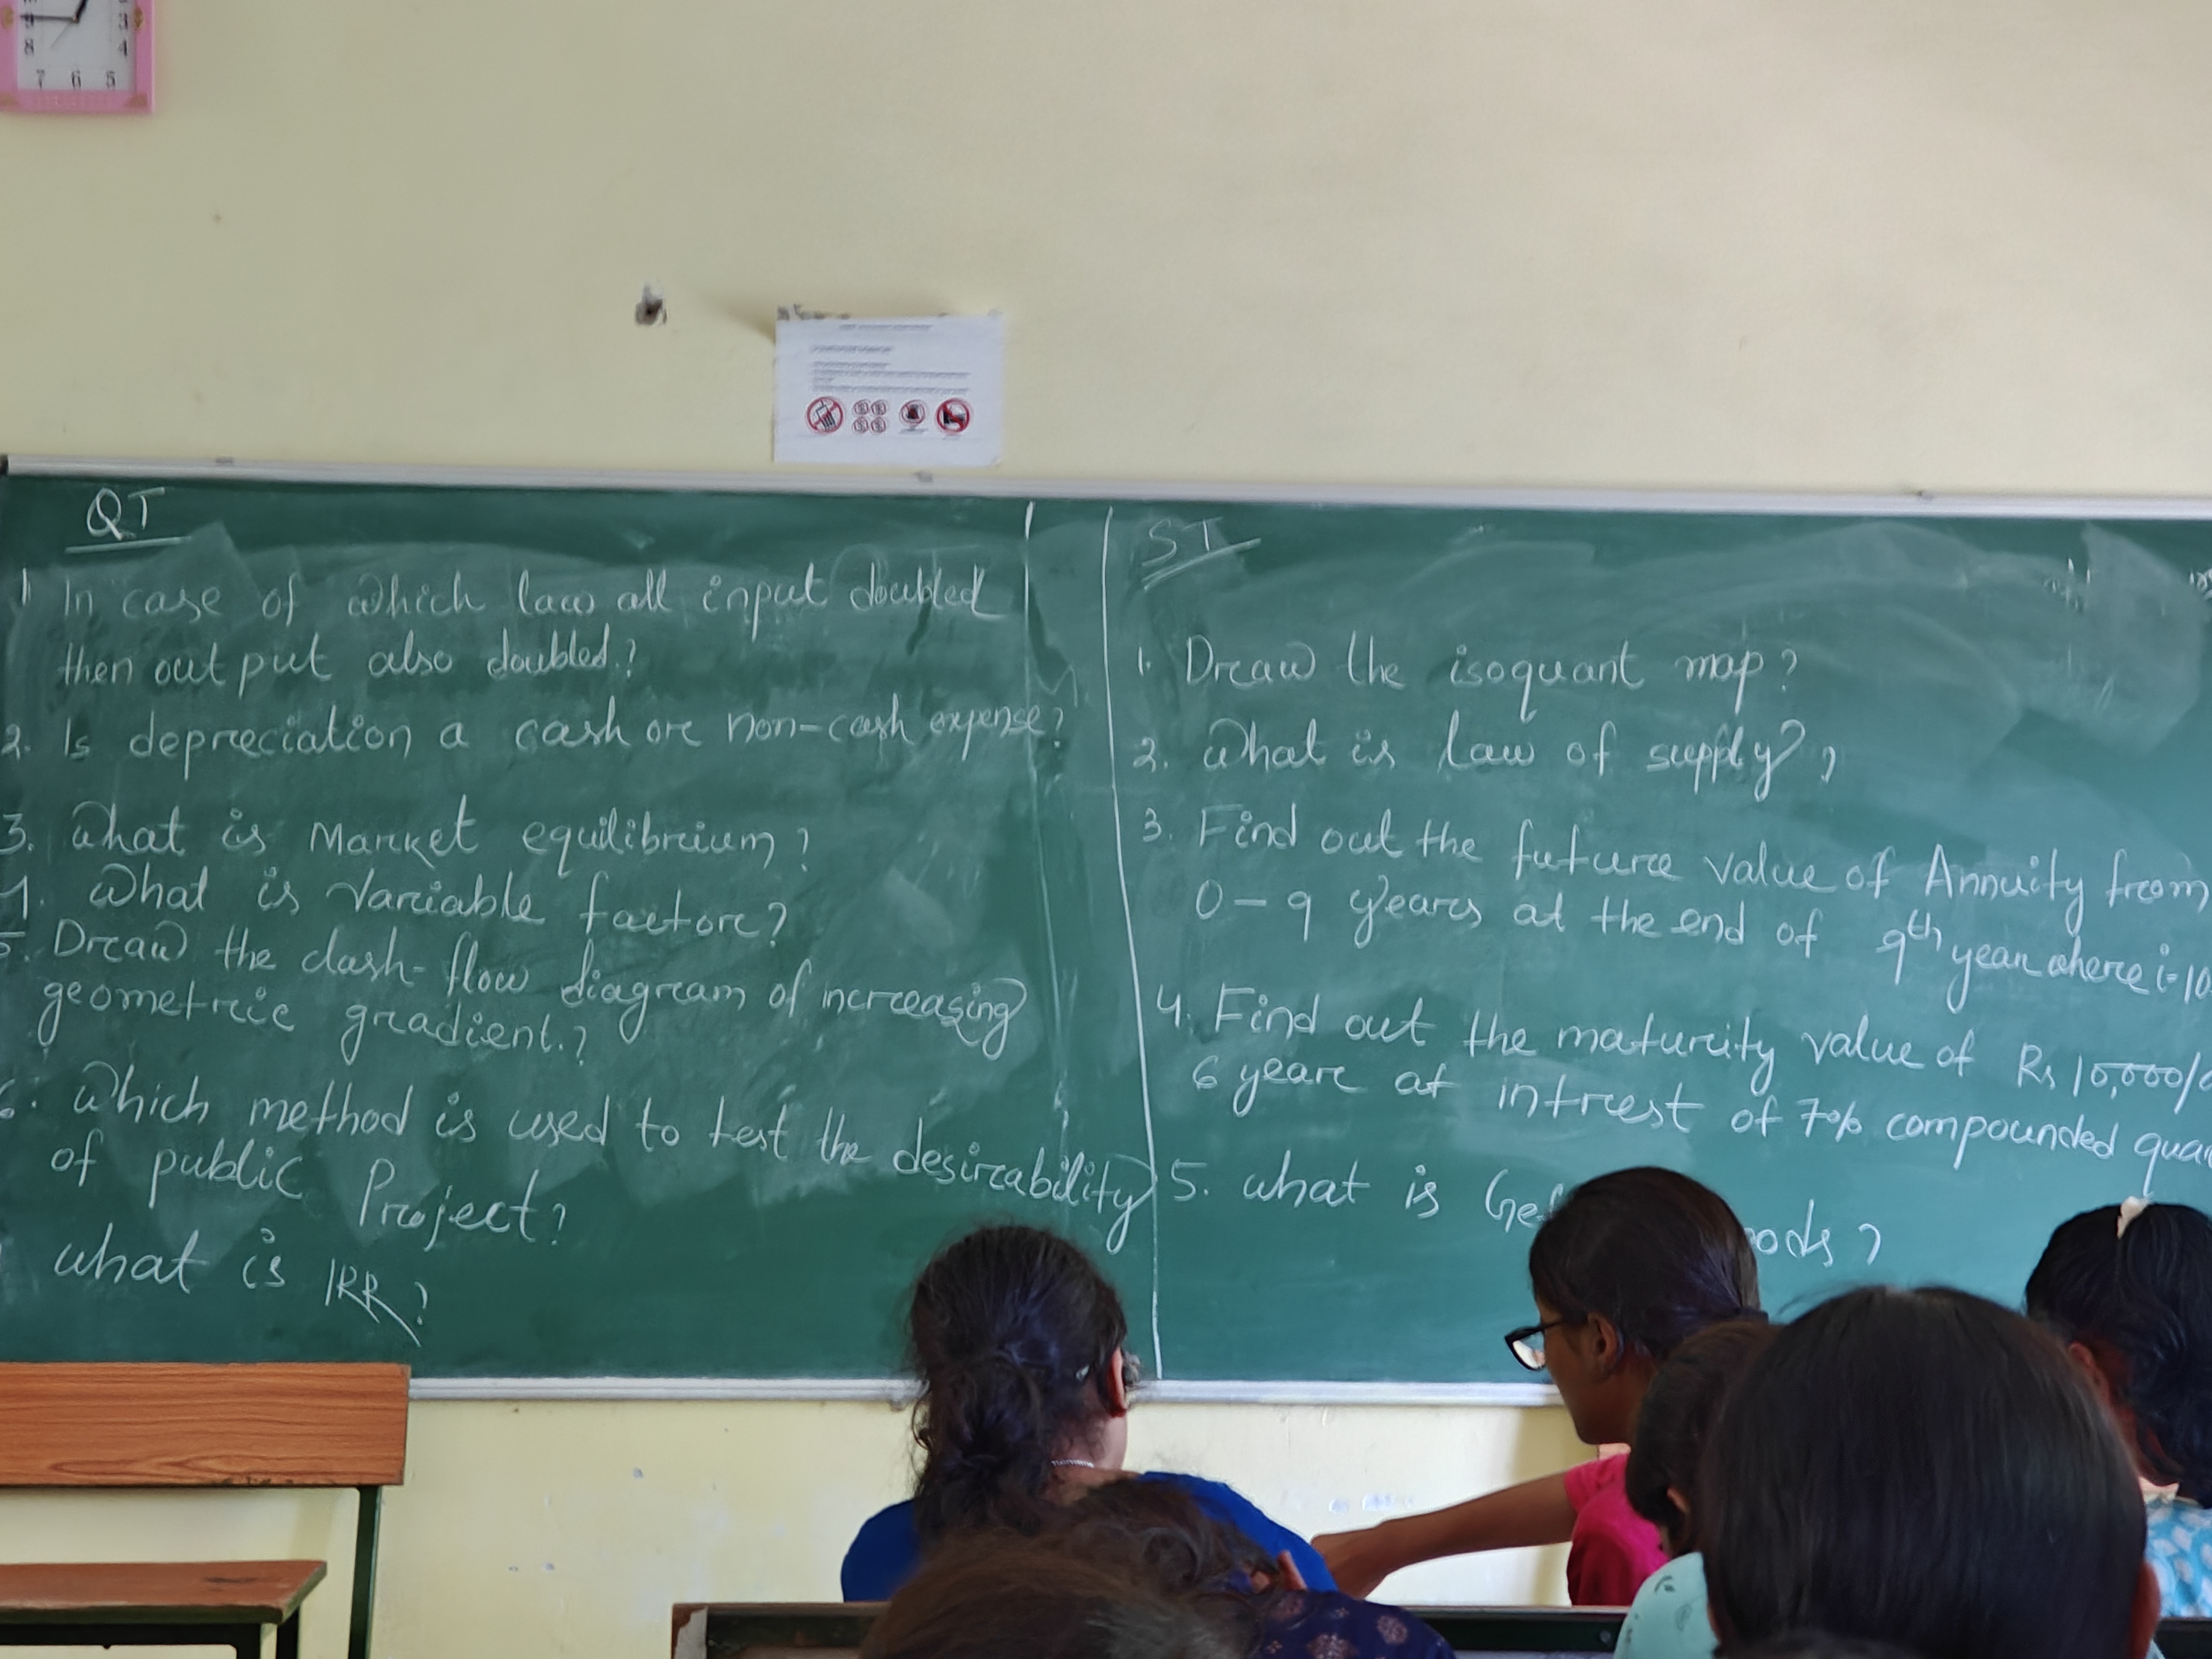 9
3
8
4
7 6 5
QT
1 In case of which law all input doubled
then output also doubled.?
2. Is depreciation a cash or non-cash expense?
3. What is Market equilibrium?
4. What is variable factor?
5. Draw the cash-flow diagram of increasing
geometric gradient.?
6. Which method is used to test the desirability
of public Project?
what is IRR?
ST
1. Draw the isoquant map?
2. What is law of supply?
3. Find out the future value of Annuity from
0-9 years at the end of 9th year where i=10
4. Find out the maturity value of Rs 10,000/
6 year at intrest of 7% compounded
5. what is